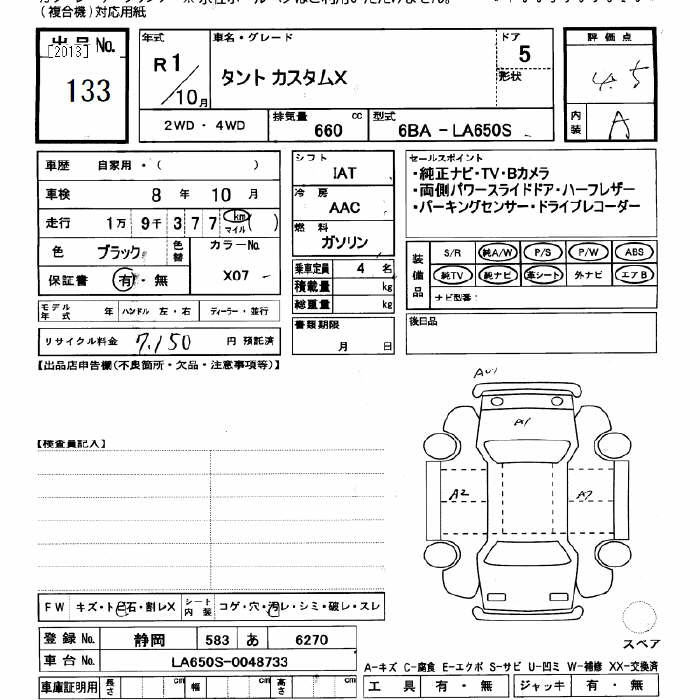 (複合機)対応用紙
出品No.
[2013]
133
年式
R1/10月
車名・グレード
タント カスタムX
ドア
5
形状
評価点
4.5
内装
A
2WD・4WD
排気量 660 cc
型式 6BA－LA650S
車歴 自家用・( )
車検 8年 10月
走行 1万9千377 km マイル ( )
色 ブラック 色替
カラーNo. X07
保証書 有・無
シフト
IAT
冷房
AAC
燃料
ガソリン
乗車定員 4名
積載量 kg
総重量 kg
書類期限
月 日
セールスポイント
・純正ナビ・TV・Bカメラ
・両側パワースライドドア・ハーフレザー
・パーキングセンサー・ドライブレコーダー
装備品
S/R 純A/W P/S P/W ABS
純TV 純ナビ 革シート 外ナビ エアB
ナビ型番：
後日品
モデル年式 年 ハンドル 左・右 ディーラー・並行
リサイクル料金 7,150 円 預託済
【出品店申告欄(不良箇所・欠品・注意事項等)】
【検査員記入】
A1
A2
FW キズ・トビ石・割レX シート内装 コゲ・穴・汚レ・シミ・破レ・スレ
登録No. 静岡 583 あ 6270
車台No. LA650S-0048733
車庫証明用 長さ cm 幅 cm 高さ cm
スペア
A-キズ C-腐食 E-エクボ S-サビ U-凹ミ W-補修 XX-交換済
工具 有・無 ジャッキ 有・無